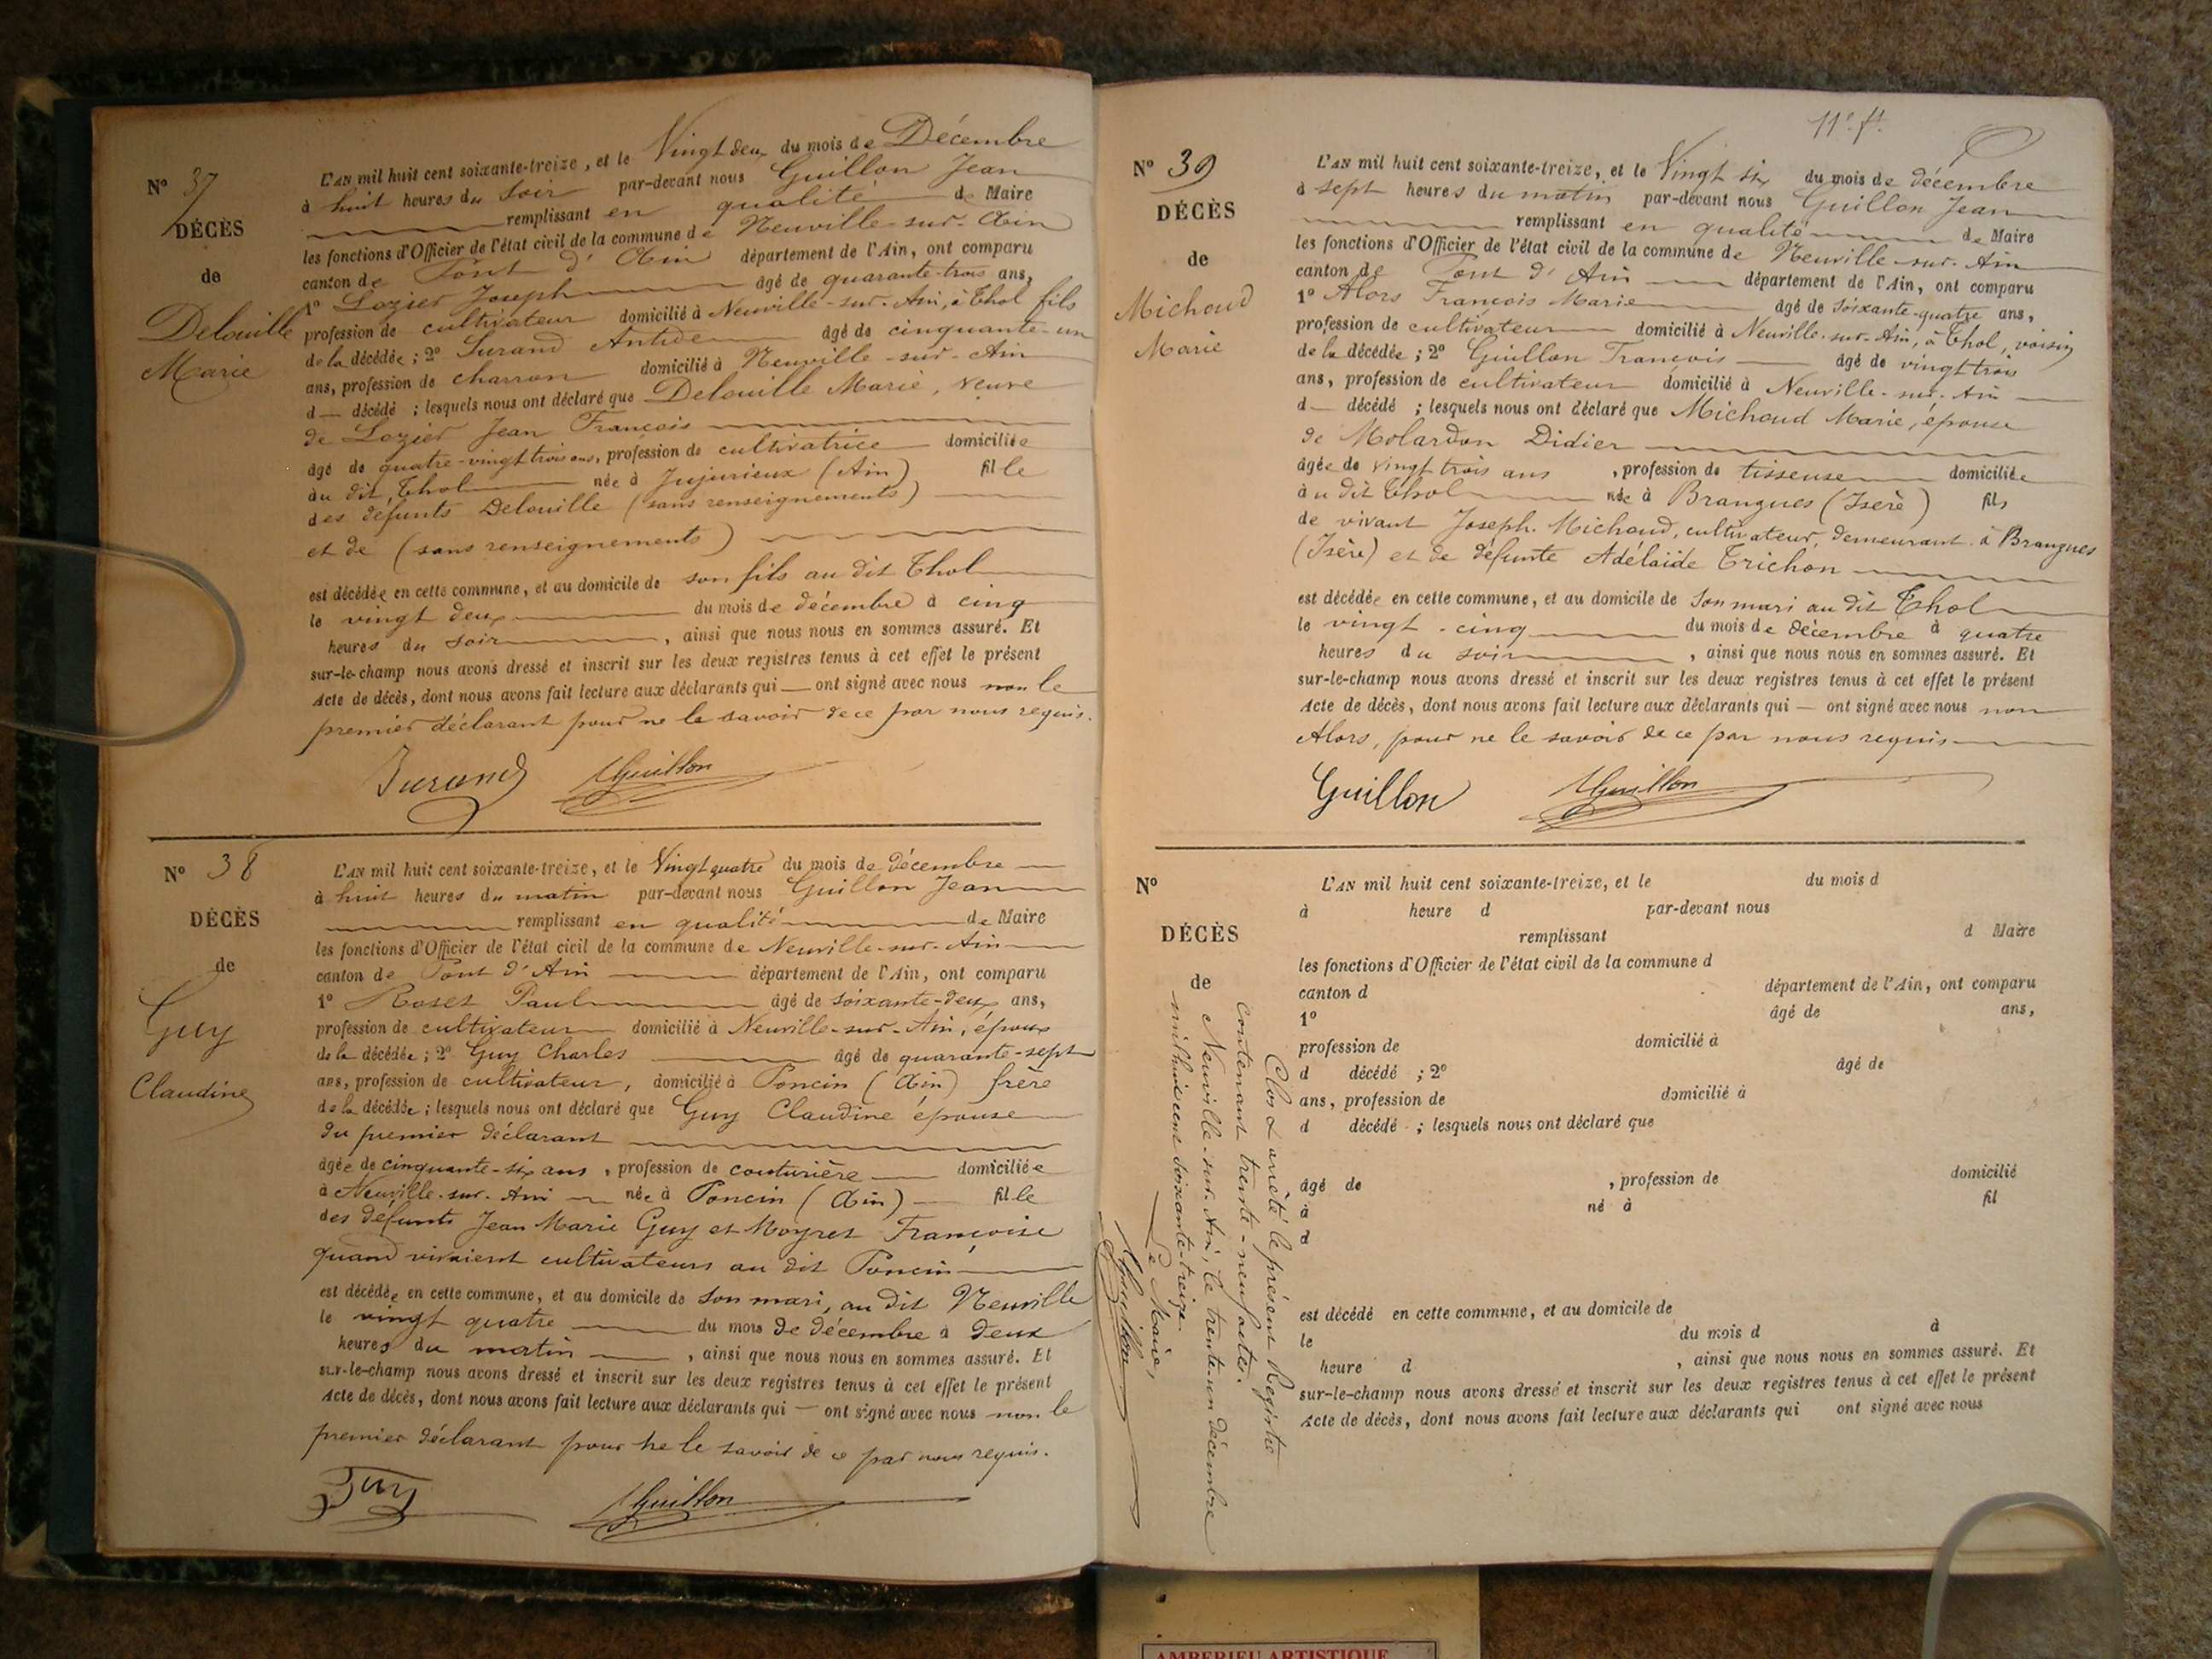 N° 37
DÉCÈS
de
Delouille
Marie
L'AN mil huit cent soixante-treize, et le Vingt deux du mois de Décembre
à huit heures du soir par-devant nous Guillon Jean
remplissant en qualité de Maire
les fonctions d'Officier de l'état civil de la commune de Neuville-sur-Ain
canton de Pont d'Ain département de l'Ain, ont comparu
1° Lozier Joseph âgé de quarante-trois ans,
profession de cultivateur domicilié à Neuville-sur-Ain, à Thol fils
de la décédée ; 2° Durand Antide âgé de cinquante-un
ans, profession de charron domicilié à Neuville-sur-Ain
d — décédé ; lesquels nous ont déclaré que Delouille Marie, veuve
de Lozier Jean François
âgé de quatre-vingt trois ans, profession de cultivatrice domiciliée
au dit Thol née à Jujurieux (Ain) fille
des défunts Delouille (sans renseignements)
et de (sans renseignements)
est décédée en cette commune, et au domicile de son fils au dit Thol
le vingt deux du mois de décembre à cinq
heures du soir, ainsi que nous nous en sommes assuré. Et
sur-le-champ nous avons dressé et inscrit sur les deux registres tenus à cet effet le présent
Acte de décès, dont nous avons fait lecture aux déclarants qui — ont signé avec nous non le
premier déclarant pour ne le savoir de ce par nous requis.
Durand Guillon
N° 38
DÉCÈS
de
Guy
Claudine
L'AN mil huit cent soixante-treize, et le Vingt quatre du mois de décembre
à huit heures du matin par-devant nous Guillon Jean
remplissant en qualité de Maire
les fonctions d'Officier de l'état civil de la commune de Neuville-sur-Ain
canton de Pont d'Ain département de l'Ain, ont comparu
1° Roset Paul âgé de soixante-deux ans,
profession de cultivateur domicilié à Neuville-sur-Ain, époux
de la décédée ; 2° Guy Charles âgé de quarante-sept
ans, profession de cultivateur, domicilié à Poncin (Ain) frère
de la décédée ; lesquels nous ont déclaré que Guy Claudine épouse
du premier déclarant
âgée de cinquante-six ans, profession de couturière domiciliée
à Neuville-sur-Ain née à Poncin (Ain) fille
des défunts Jean Marie Guy et Moyret Françoise
quand vivaient cultivateurs au dit Poncin
est décédée en cette commune, et au domicile de son mari, au dit Neuville
le vingt quatre du mois de décembre à deux
heures du matin, ainsi que nous nous en sommes assuré. Et
sur-le-champ nous avons dressé et inscrit sur les deux registres tenus à cet effet le présent
Acte de décès, dont nous avons fait lecture aux déclarants qui — ont signé avec nous non le
premier déclarant pour ne le savoir de ce par nous requis.
Guy Guillon
11e ft.
N° 39
DÉCÈS
de
Michoud
Marie
L'AN mil huit cent soixante-treize, et le Vingt six du mois de décembre
à sept heures du matin par-devant nous Guillon Jean
remplissant en qualité de Maire
les fonctions d'Officier de l'état civil de la commune de Neuville-sur-Ain
canton de Pont d'Ain département de l'Ain, ont comparu
1° Alors François Marie âgé de soixante-quatre ans,
profession de cultivateur domicilié à Neuville-sur-Ain, à Thol, voisin
de la décédée ; 2° Guillon François âgé de vingt trois
ans, profession de cultivateur domicilié à Neuville-sur-Ain
d — décédé ; lesquels nous ont déclaré que Michoud Marie, épouse
de Molardon Didier
âgée de vingt trois ans, profession de tisseuse domiciliée
à u dit Thol née à Brangues (Isère) fils
de vivant Joseph Michoud, cultivateur, demeurant à Brangues
(Isère) et de défunte Adélaïde Trichon
est décédée en cette commune, et au domicile de son mari au dit Thol
le vingt-cinq du mois de décembre à quatre
heures du soir, ainsi que nous nous en sommes assuré. Et
sur-le-champ nous avons dressé et inscrit sur les deux registres tenus à cet effet le présent
Acte de décès, dont nous avons fait lecture aux déclarants qui — ont signé avec nous non
Alors, pour ne le savoir de ce par nous requis
Guillon Guillon
N°
DÉCÈS
de
L'AN mil huit cent soixante-treize, et le du mois d
à heure d par-devant nous
remplissant d Maire
les fonctions d'Officier de l'état civil de la commune d
canton d département de l'Ain, ont comparu
1° âgé de ans,
profession de domicilié à
d décédé ; 2° âgé de
ans, profession de domicilié à
d décédé ; lesquels nous ont déclaré que
âgé de , profession de domicilié
à né à fil
d
est décédé en cette commune, et au domicile de
le du mois d à
heure d , ainsi que nous nous en sommes assuré. Et
sur-le-champ nous avons dressé et inscrit sur les deux registres tenus à cet effet le présent
Acte de décès, dont nous avons fait lecture aux déclarants qui ont signé avec nous
Clos & arrêté le présent Registre
contenant trente-neuf actes.
Neuville-sur-Ain, le trente-un décembre
mil huit cent soixante-treize.
Le Maire,
Guillon
AMBERIEU ARTISTIQUE